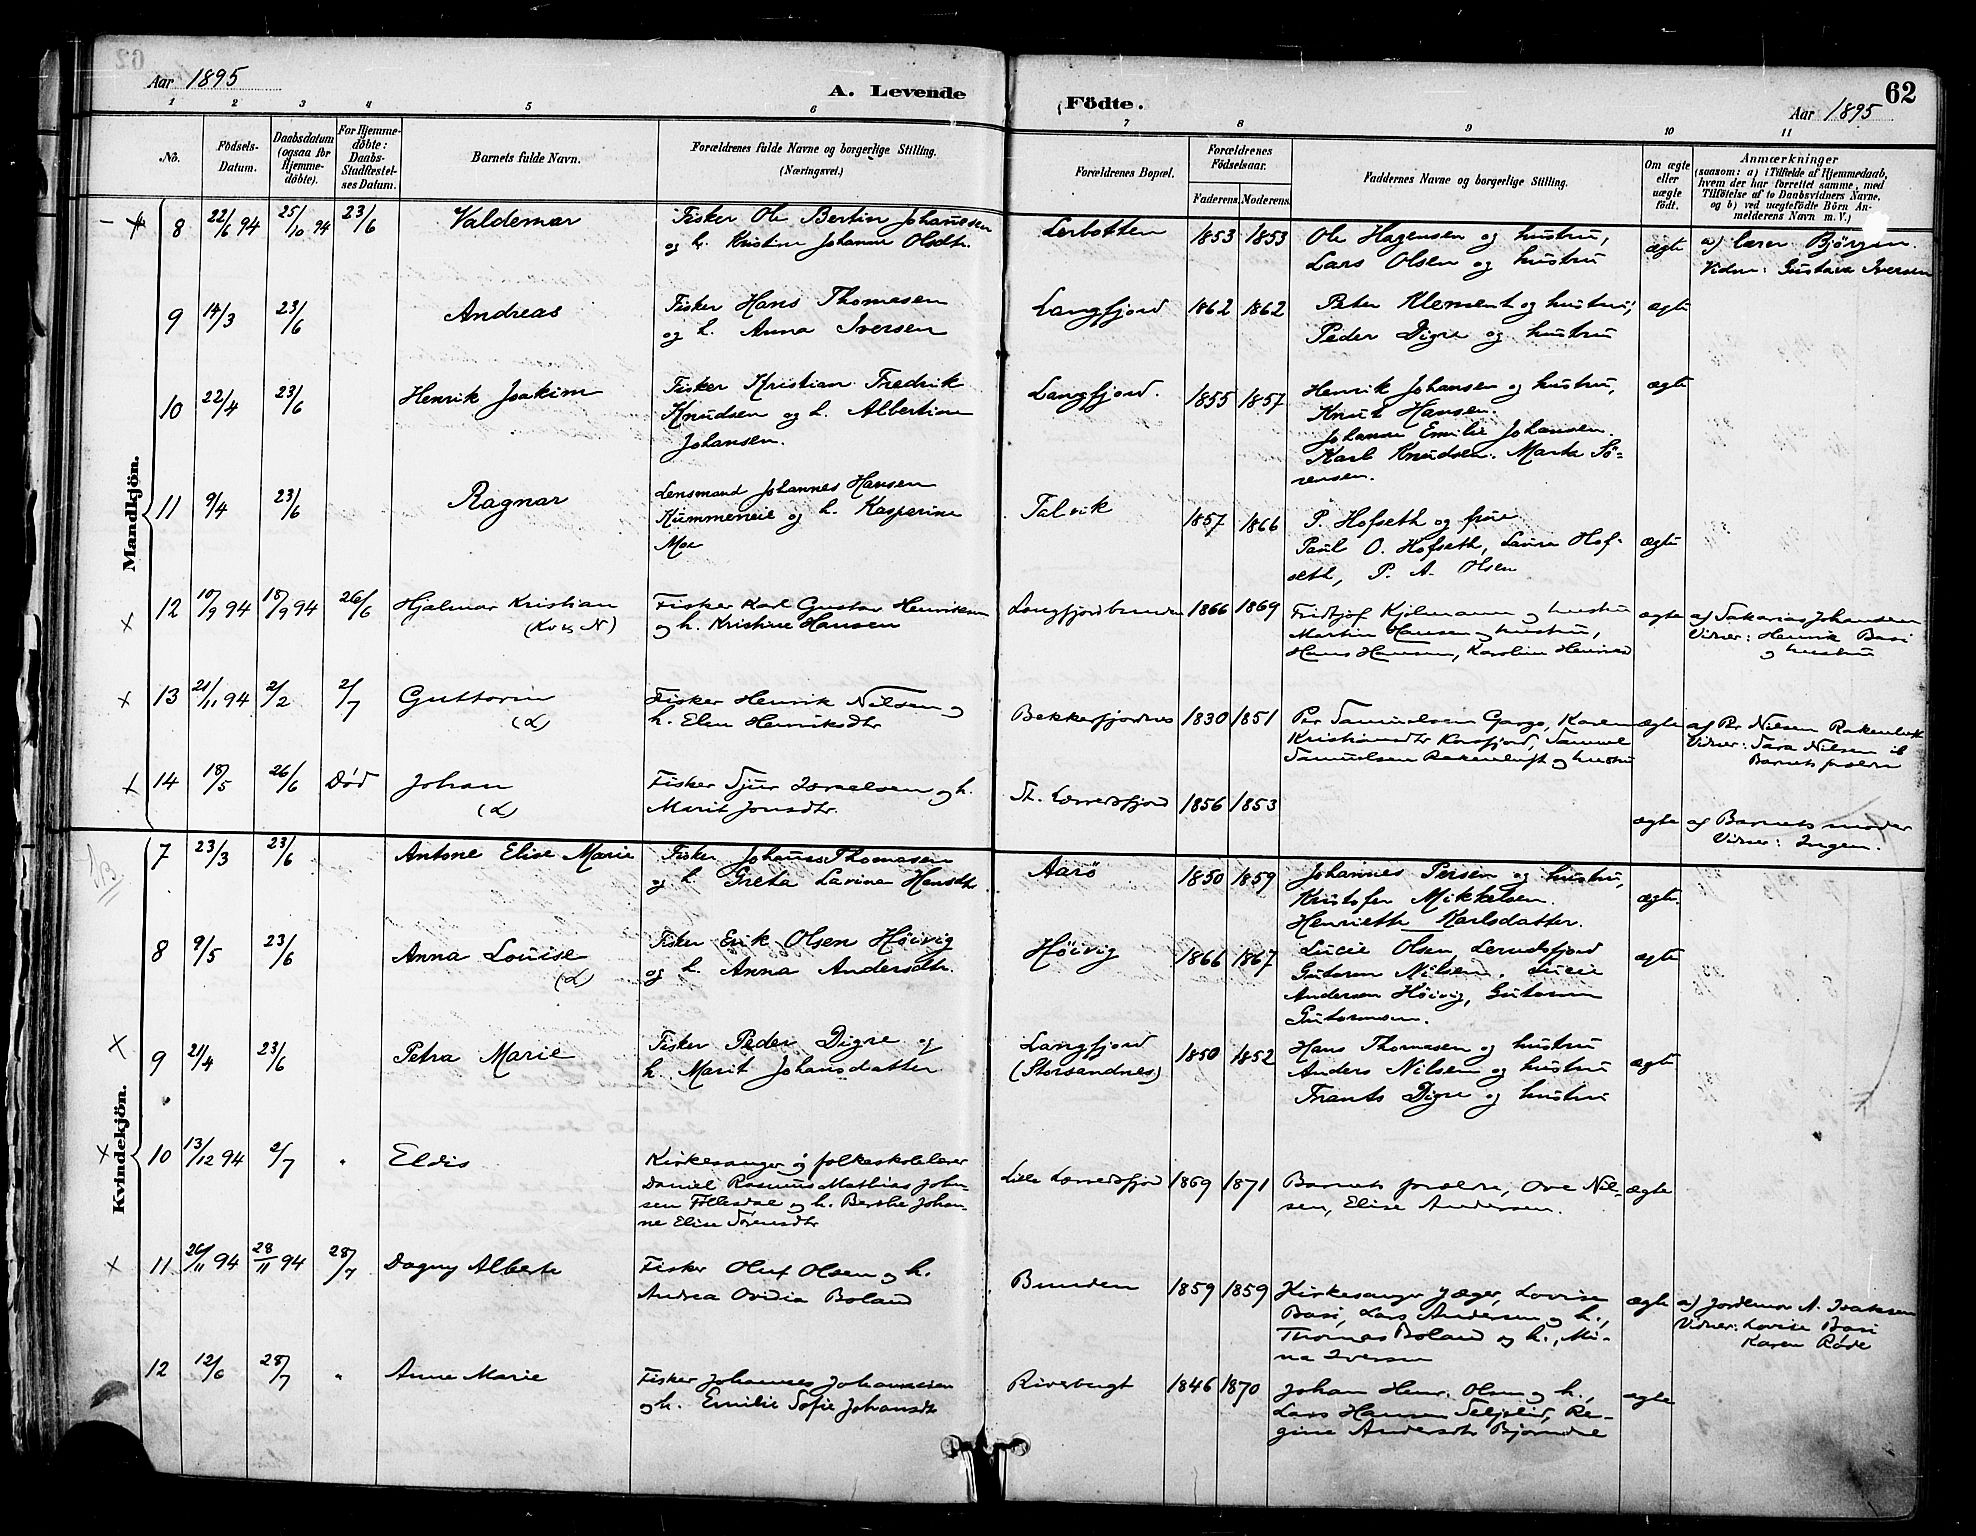 Aar 1895
A. Levende
Födte.
Aar 1895
62
1 2 3 4 5 6 7 8 9 10 11
No.
Födsels-Datum.
Daabsdatum (ogsaa for Hjemme-döbte).
For Hjemme-döbte: Daabs-Stadfæstel-ses Datum.
Barnets fulde Navn.
Forældrenes fulde Navne og borgerlige Stilling. (Næringsvei.)
Forældrenes Bopæl.
Forældrenes Födselsaar.
Faderens. Moderens.
Faddernes Navne og borgerlige Stilling.
Om ægte eller uægte født.
Anmærkninger
(saasom: a) i Tilfælde af Hjemmedaab, hvem der har forrettet samme, med Tilföielse af to Daabsvidners Navne, og b) ved uægtefödte Börn An-melderens Navn m. V.)
Mandkjön.
8 22/6 94 25/10 94 23/6 Valdemar Fisker Ole Bertin Johannesen
og h. Kristine Johanne Olsdtr. Lerbotten 1853 1853 Ole Hagensen og hustru,
Lars Olsen og hustru ægte a) lærer Bjørgan.
Vidne: Gustava Iversen
9 14/3 23/6 Andreas Fisker Hans Thomasen
og h. Anna Iversen Langfjord 1862 1862 Peter Klement og hustru,
Peder Digre og hustru ægte
10 22/4 23/6 Henrik Joakim Fisker Kristian Fredrik
Knudsen og h. Albertine
Johansen. Langfjord. 1855 1857 Henrik Johansen og hustru,
Knut Hansen.
Johanne Emilie Johansen.
Karl Knudsen. Marta Sö-
rensen. ægte
11 9/4 23/6 Ragnar Lensmand Johannes Hansen
Kummeneie og h. Kasperine
Moe Talvik 1857 1866 P. Hofseth og frue
Paul O. Hofseth, Laura Hof-
seth, P. A. Olsen ægte
12 10/9 94 18/9 94 26/6 Hjalmar Kristian
(Kv & N) Fisker Karl Gustav Henriksen
og h. Kristine Hansen Langfjordbunden 1866 1869 Fridtjof Kjelmann og hustru
Martin Hansen og hustru,
Hans Hansen, Karoline ægte af Sakarias Johansen
Vidner: Henrik Basi
og hustru
13 21/11 94 2/2 2/7 Guttorm
(L) Fisker Henrik Nilsen og
h. Elen Henriksdtr Bekkerfjordnes 1830 1851 Per Samuelsen Gargo, Karen
Kristiansdtr Korsfjord, Samuel
Samuelsen Rakenluft og hustru ægte af Per Nilsen Rakenluft
Vidner: Sara Nilsen &
Barnets forældre
14 18/5 26/6 Död Johan
(L) Fisker Sjur Israelsen og h.
Marit Jonsdtr. St. Lerredsfjord 1856 1853 ægte af Barnets moder
Vidner: Ingen.
Kvindekjön.
7 23/3 23/6 Antone Elise Marie Fisker Johannes Thomasen
og h. Greta Lavina Hansdtr. Aarö 1850 1859 Johannes Persen og hustru,
Kristofer Mikkelsen.
Henriette Karlsdatter. ægte.
8 9/5 23/6 Anna Louise
(L) Fisker Erik Olsen Höivig
og h. Anna Andersdtr. Höivig 1866 1867 Lucie Olsen, Lerredsfjord
Gutorm Nilsen. Lucie
Andersen Höivig, Gutorm
Gutormsen. ægte
9 21/4 23/6 Petra Marie Fisker Peder Digre og
h. Marit Johansdatter Langfjord
(Storsandnes) 1850 1852 Hans Thomasen og hustru
Anders Nilsen og hustru
Frants Digre og hustru ægte
10 13/12 94 2/7 " Eldis Kirkesanger og folkeskolelærer
Daniel Rasmus Mathias Johan-
sen Follesdal og h. Berthe Johan-
ne Elise Sörensdtr Lille Lerredsfjord 1869 1871 Barnets forældre, Ove Nil-
sen, Elise Andersen. ægte
11 26/11 94 28/11 94 28/7 Dagny Alberte Fisker Oluf Olsen og h.
Andrea Ovidia Boland Bunden 1859 1859 Kirkesanger Jæger, Lovise
Basi, Lars Andersen og h.,
Thomas Boland og h., Mi-
na Iversen ægte a) Jordemor N. Isaksen
Vidner: Lovise Basi
Karen Röde
12 12/6 28/7 " Anne Marie Fisker Johannes Johannesen
og h. Emilie Sofie Johansdtr Riverbugt 1846 1870 Johan Henr. Olsen og h.,
Lars Hansen Seljelid, Re-
gine Andersdtr Bjørndal ægte